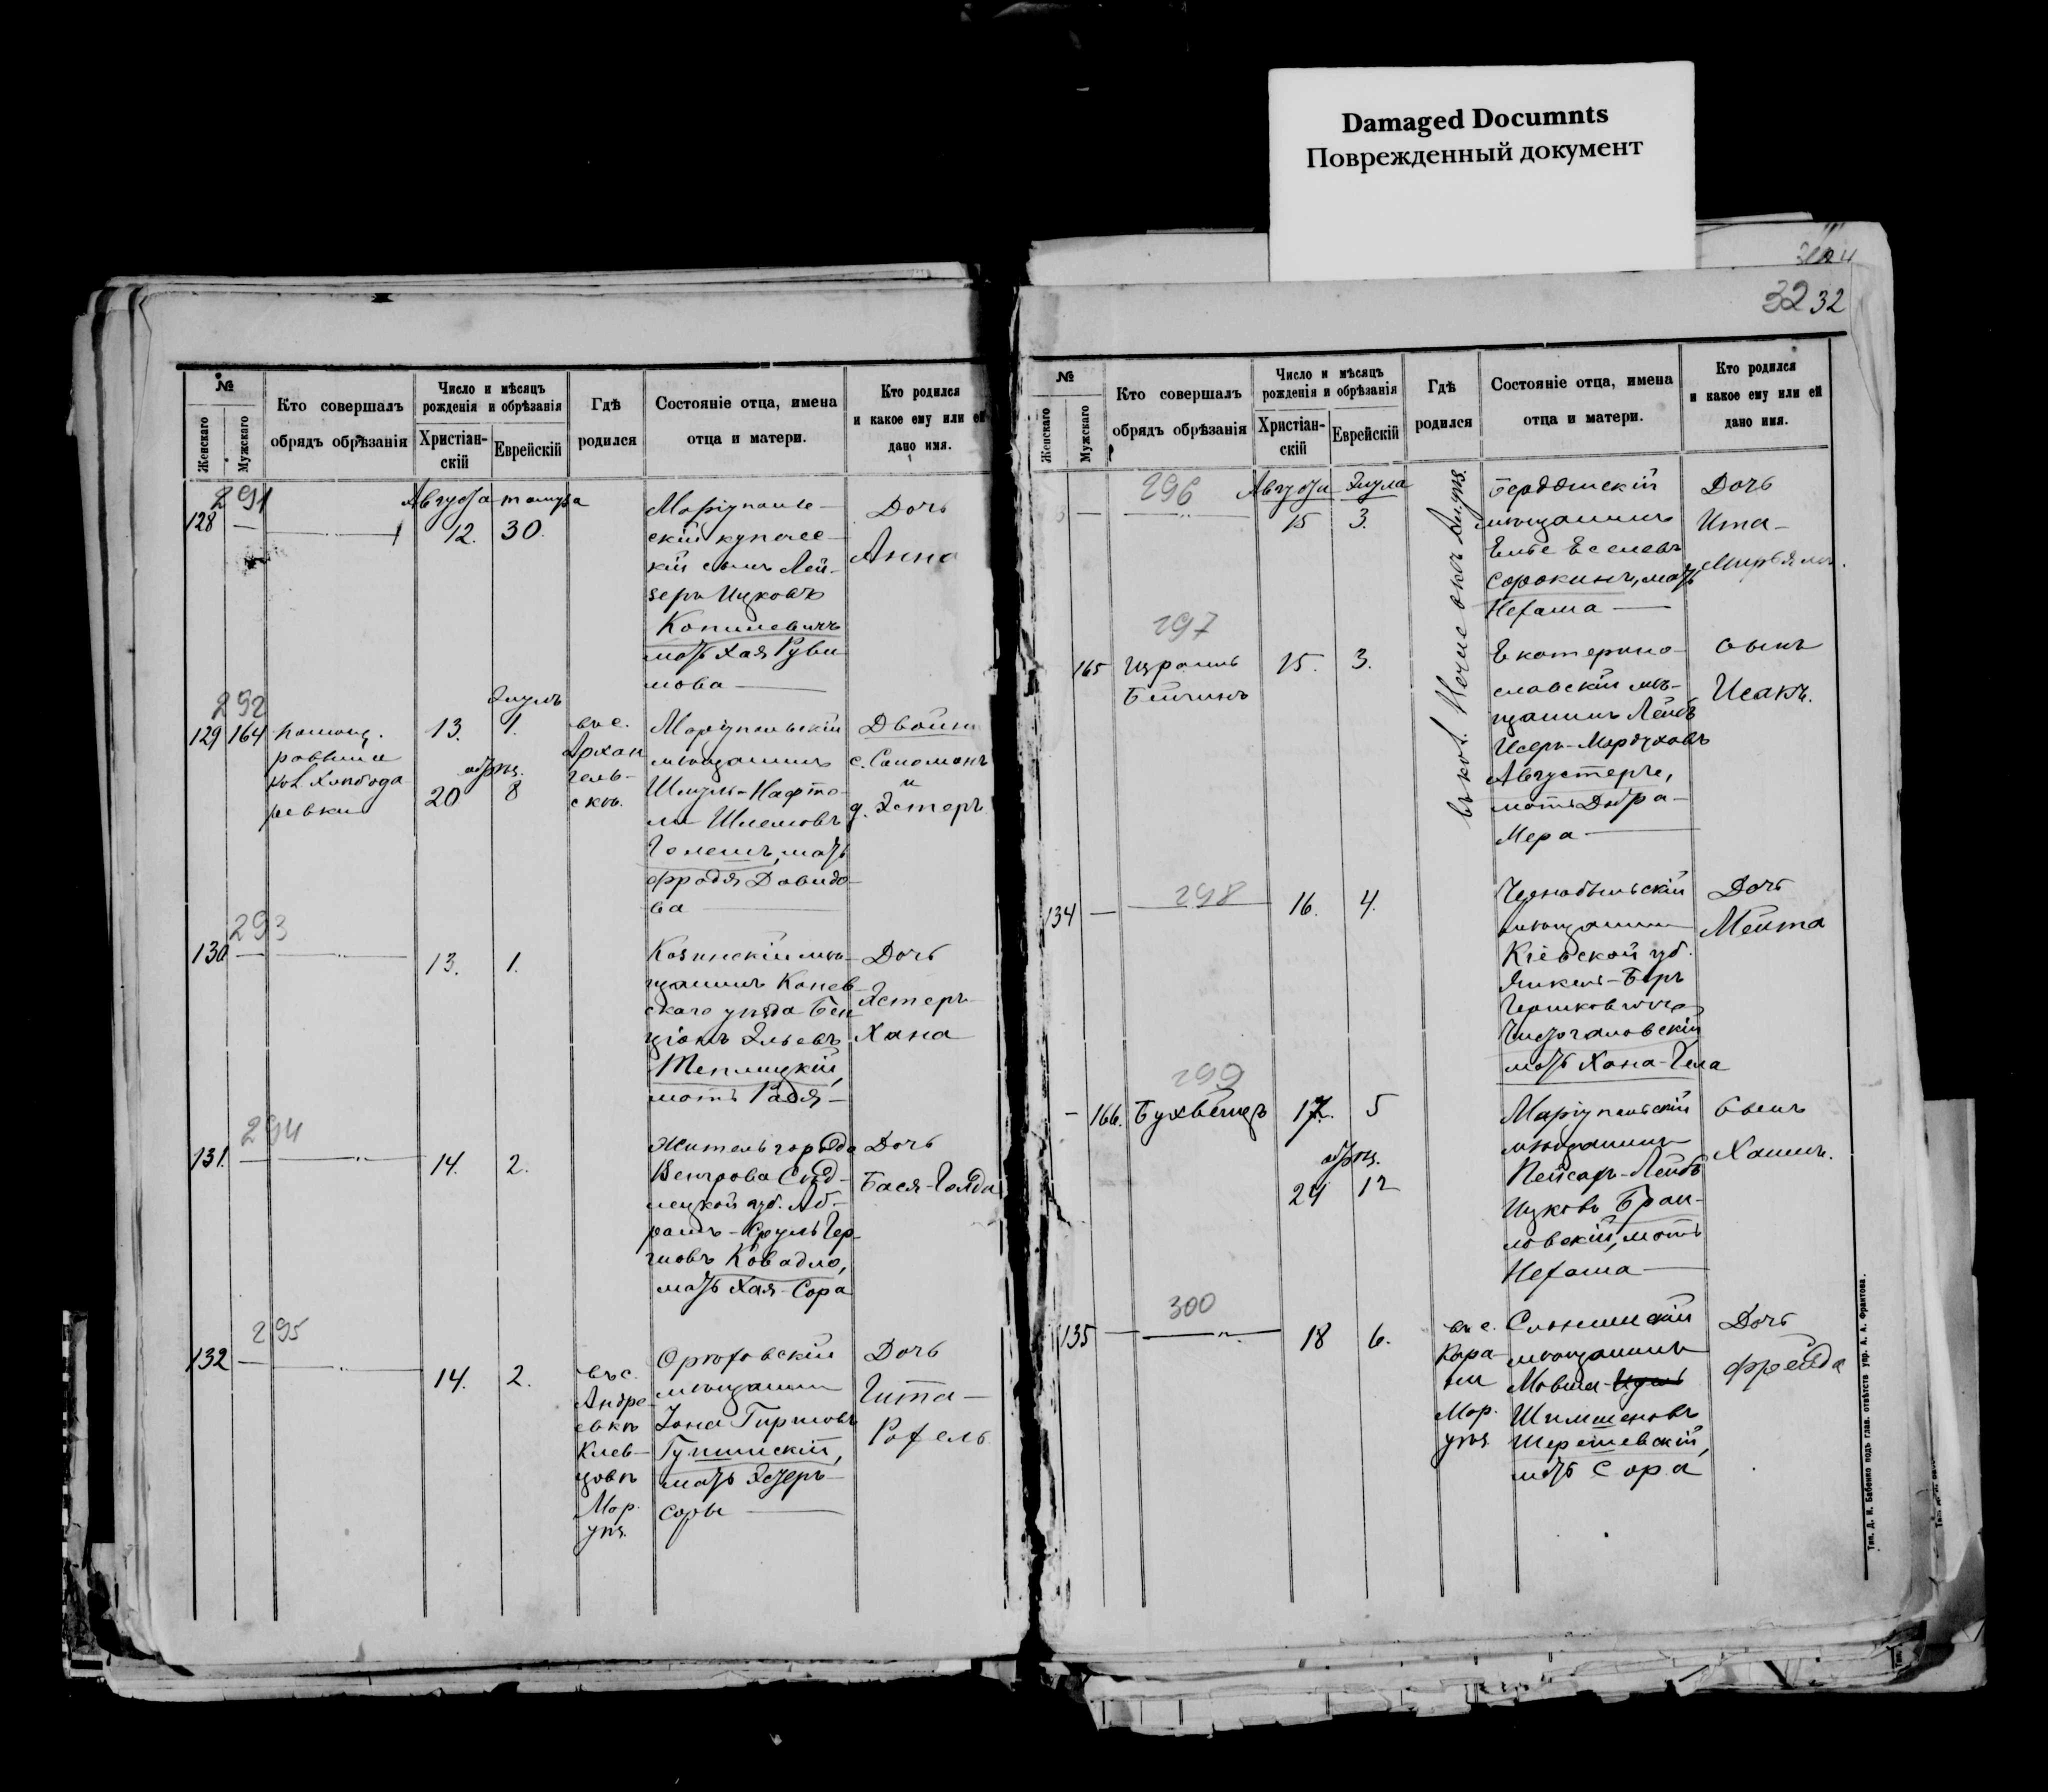 Damaged Documnts
Поврежденный документ
32 32
№
Женскаго
Мужскаго
Кто совершалъ
обрядъ обрѣзанія
Число и мѣсяцъ
рожденія и обрѣзанія
Христіан-
скій
Еврейскій
Гдѣ
родился
Состояніе отца, имена
отца и матери.
Кто родился
и какое ему или ей
дано имя.
291
128 —
Августа
12. 30.
Маріуполь-
скій купечес-
кій сынъ Лей-
зеръ Ицковъ
Копилевичъ
мать Хая Руви
мова
Дочь
Анна
292
129 164
раввина
Элулъ
13. 1.
обрѣз.
20 8
въ с.
Архан
гель-
скѣ.
Маріупольскій
мѣщанинъ
Шмуль-Нафто-
ли Шлемовъ
Гелешъ, мать
Фрадя Давидо-
ва
Двойни
с. Саломонъ
и
д. Эстеръ
293
130 —
13. 1.
Козинскій мѣ-
щанинъ Канев-
скаго уѣзда Бен
ціонъ Эльевъ
Теплицкій,
мать Радя
Дочь
Эстеръ-
Хана
294
131. —
14. 2.
Житель города
Венгрова Сѣд-
лецкой губ. Аб-
рамъ-Сруль Гер-
шовъ Ковадло,
мать Хая-Сора
Дочь
Бася-Голда
295
132 —
14. 2.
въ с.
Андре-
евкѣ
Клев-
цовѣ
Мар.
уѣз.
Орѣховскій
мѣщанинъ
Іона Гиршовъ
мать Эстеръ-
Соры
Дочь
Гита-
Рохель
№
Женскаго
Мужскаго
Кто совершалъ
обрядъ обрѣзанія
Число и мѣсяцъ
рожденія и обрѣзанія
Христіан-
скій
Еврейскій
Гдѣ
родился
Состояніе отца, имена
отца и матери.
Кто родился
и какое ему или ей
дано имя.
296
Августа Элула
15 3.
Бердянскій
мѣщанинъ
Сорокинъ, мать
Нехама
Дочь
Ита-
Мирьямъ.
297
165 Израиль
15. 3.
Екатерино-
славскій мѣ-
щанинъ Лейбъ
Исеръ-Мордуховъ
Августеръ,
мать Добра-
Мера
Сынъ
Исакъ.
298
134 —
16. 4.
Чернобыльскій
мѣщанинъ
Кіевской губ.
Янкель-Беръ
Гершковичъ
мать Хана-Гела
Дочь
299
— 166. Бухбиндъ
17. 5
обрѣз.
24 12
Маріупольскій
мѣщанинъ
Пейсахъ-Лейбъ
Ицковъ Браи-
ловскій, мать
Нехама
Сынъ
Хаимъ.
300
135 —
18 6.
въ с.
Кара-
Мар.
уѣз
Слонимскій
мѣщанинъ
Мовша
Шимшоновъ
Шерешевскій,
мать Сора
Дочь
Фрейда
Тип. Д. И. Бабенко подъ глав. отвѣтств упр. А. А. Франтова.